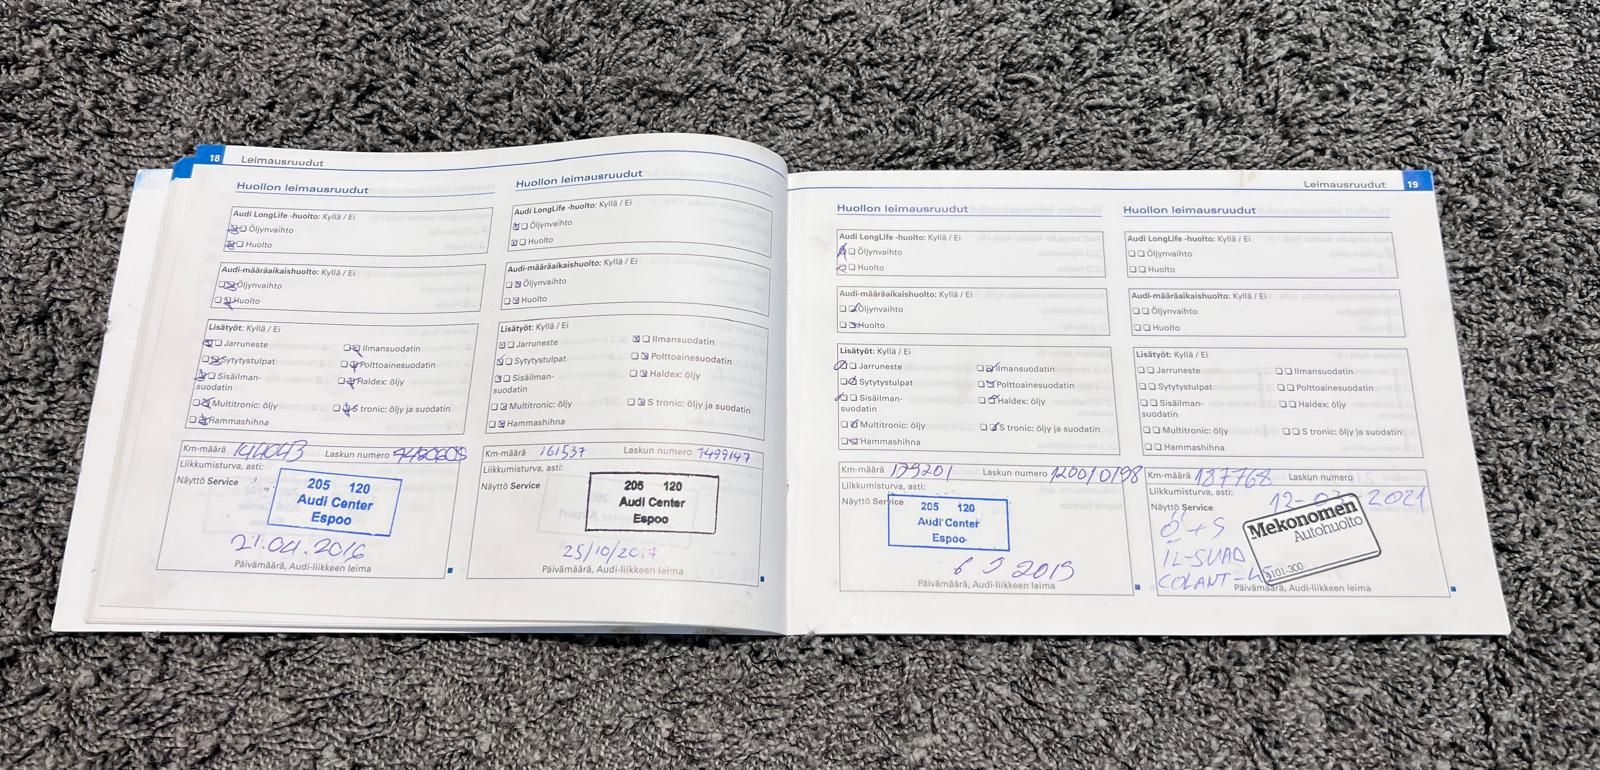 18 Leimausruudut
Huollon leimausruudut
Audi LongLife -huolto: Kyllä / Ei
Öljynvaihto
Huolto
Audi-määräaikaishuolto: Kyllä / Ei
Öljynvaihto
Huolto
Lisätyöt: Kyllä / Ei
Jarruneste
Ilmansuodatin
Sytytystulpat
Polttoainesuodatin
Sisäilman-
suodatin
Haldex: öljy
Multitronic: öljy
S tronic: öljy ja suodatin
Hammashihna
Km-määrä Laskun numero
Liikkumisturva, asti:
Näyttö Service
205 120
Audi Center
Espoo
21.04.2016
Päivämäärä, Audi-liikkeen leima
Huollon leimausruudut
Audi LongLife -huolto: Kyllä / Ei
Öljynvaihto
Huolto
Audi-määräaikaishuolto: Kyllä / Ei
Öljynvaihto
Huolto
Lisätyöt: Kyllä / Ei
Jarruneste
Ilmansuodatin
Sytytystulpat
Polttoainesuodatin
Sisäilman-
suodatin
Haldex: öljy
Multitronic: öljy
S tronic: öljy ja suodatin
Hammashihna
Km-määrä 161537 Laskun numero 1499147
Liikkumisturva, asti:
Näyttö Service
205 120
Audi Center
Espoo
25/10/2017
Päivämäärä, Audi-liikkeen leima
Leimausruudut 19
Huollon leimausruudut
Audi LongLife -huolto: Kyllä / Ei
Öljynvaihto
Huolto
Audi-määräaikaishuolto: Kyllä / Ei
Öljynvaihto
Huolto
Lisätyöt: Kyllä / Ei
Jarruneste
Ilmansuodatin
Sytytystulpat
Polttoainesuodatin
Sisäilman-
suodatin
Haldex: öljy
Multitronic: öljy
S tronic: öljy ja suodatin
Hammashihna
Km-määrä 179201 Laskun numero 120010198
Liikkumisturva, asti:
Näyttö Service
205 120
Audi Center
Espoo
2019
Päivämäärä, Audi-liikkeen leima
Huollon leimausruudut
Audi LongLife -huolto: Kyllä / Ei
Öljynvaihto
Huolto
Audi-määräaikaishuolto: Kyllä / Ei
Öljynvaihto
Huolto
Lisätyöt: Kyllä / Ei
Jarruneste
Ilmansuodatin
Sytytystulpat
Polttoainesuodatin
Sisäilman-
suodatin
Haldex: öljy
Multitronic: öljy
S tronic: öljy ja suodatin
Hammashihna
Km-määrä 187768 Laskun numero
Liikkumisturva, asti:
Näyttö Service
2021
Mekonomen
Autohuolto
Ö+S
IL-SUAD
COLANT
Päivämäärä, Audi-liikkeen leima